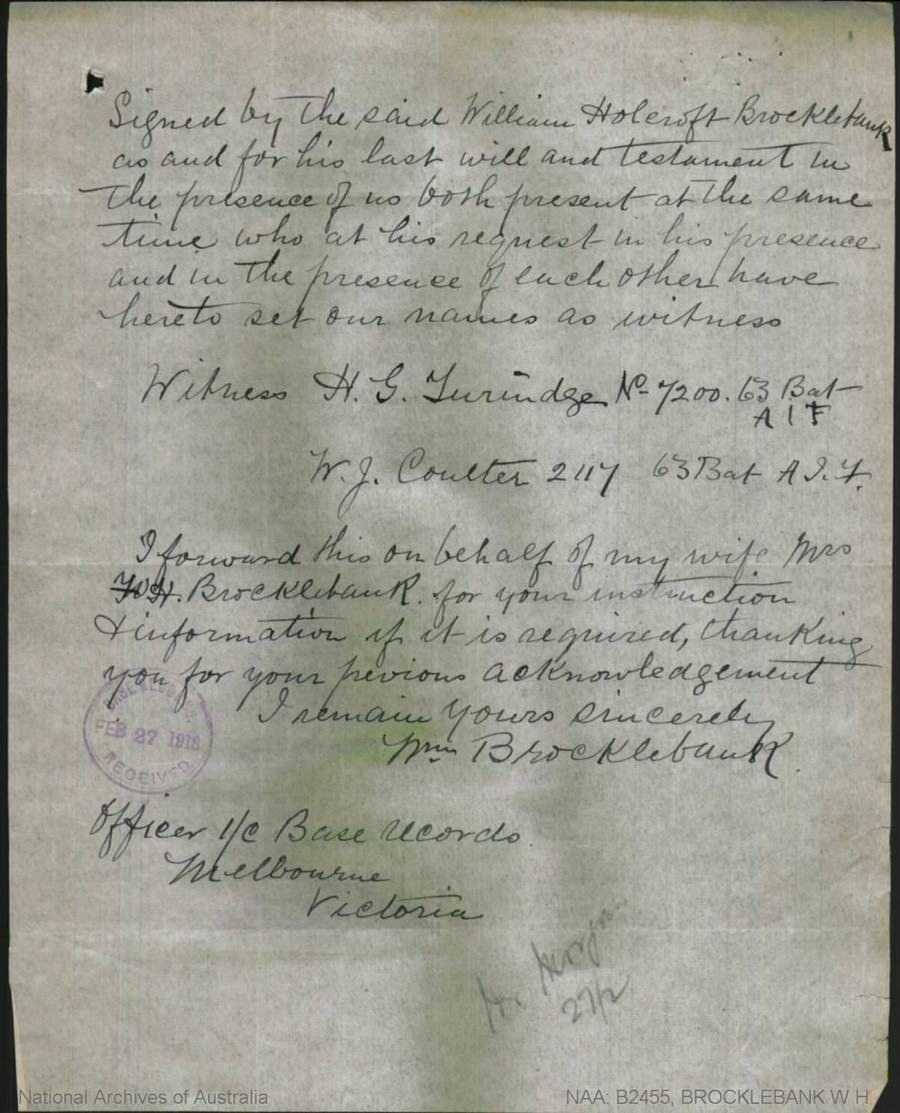 Signed by the said William Holcroft Brocklebank
as and for his last will and testament in
the presence of us both present at the same
time who at his request in his presence
and in the presence of each other have
hereto set our names as witness
Witness H. G. No 7200. 63 Bat
A I F
W. J. Coulter 2117 63 Bat A.I.F.
I forward this on behalf of my wife Mrs
Brocklebank. for your instruction
& information if it is required, thanking
you for your pevious acknowledgement
I remain yours sincerely
Wm Brocklebank.
BASE RECORDS
FEB 27 1918
RECEIVED
Officer I/C Base records.
Melbourne
Victoria
27/2
National Archives of Australia
NAA: B2455, BROCKLEBANK W H